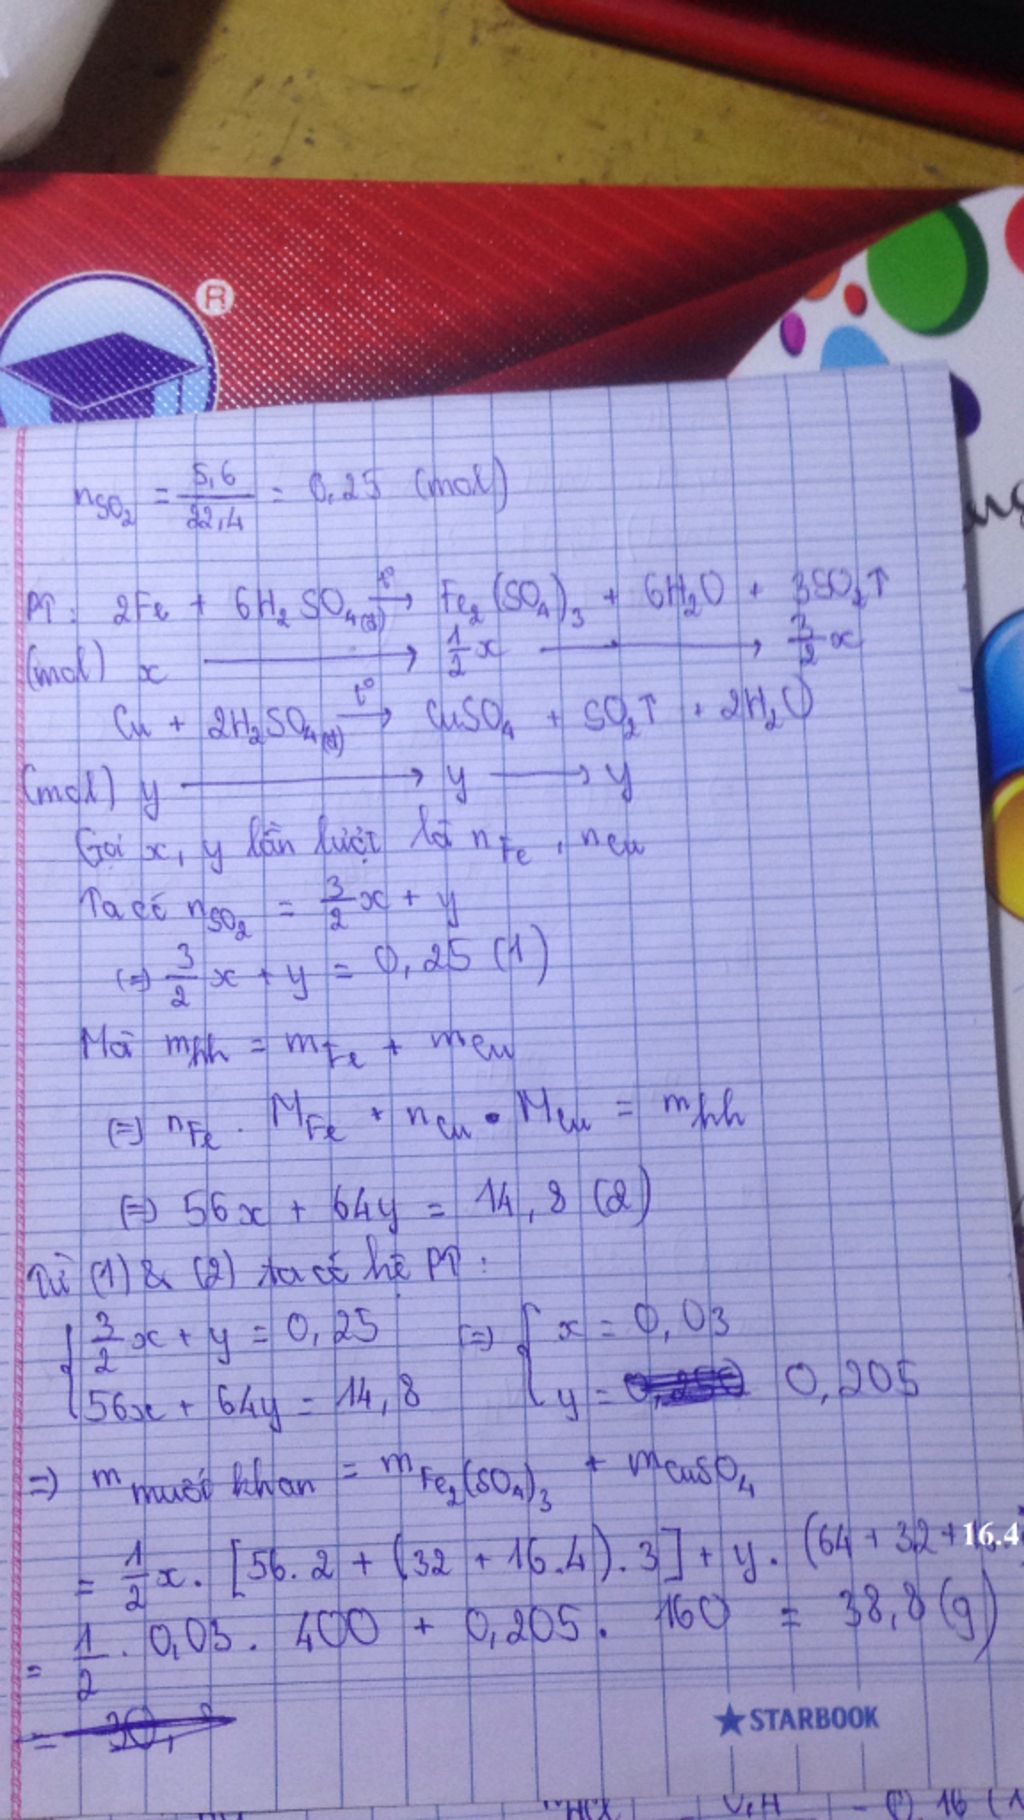 ®
nSO₂ = 5,6/22,4 = 0,25 (mol)
PT: 2Fe + 6H₂SO₄(đ) t°→ Fe₂(SO₄)₃ + 6H₂O + 3SO₂↑
(mol) x ⟶ 1/2 x ⟶ 3/2 x
Cu + 2H₂SO₄(đ) t°→ CuSO₄ + SO₂↑ + 2H₂O
(mol) y ⟶ y ⟶ y
Gọi x, y lần lượt là nFe, nCu
Ta có nSO₂ = 3/2 x + y
(=) 3/2 x + y = 0,25 (1)
Mà mhh = mFe + mCu
(=) nFe . MFe + nCu . MCu = mhh
(=) 56x + 64y = 14,8 (2)
Từ (1) & (2) ta có hệ PT:
{ 3/2 x + y = 0,25 (=) { x = 0,03
56x + 64y = 14,8 y = 0,205
=) m muối khan = mFe₂(SO₄)₃ + mCuSO₄
= 1/2 x . [56.2 + (32 + 16.4).3] + y . (64 + 32 + 16.4
= 1/2 . 0,03 . 400 + 0,205 . 160 = 38,8 (g)
=
STARBOOK